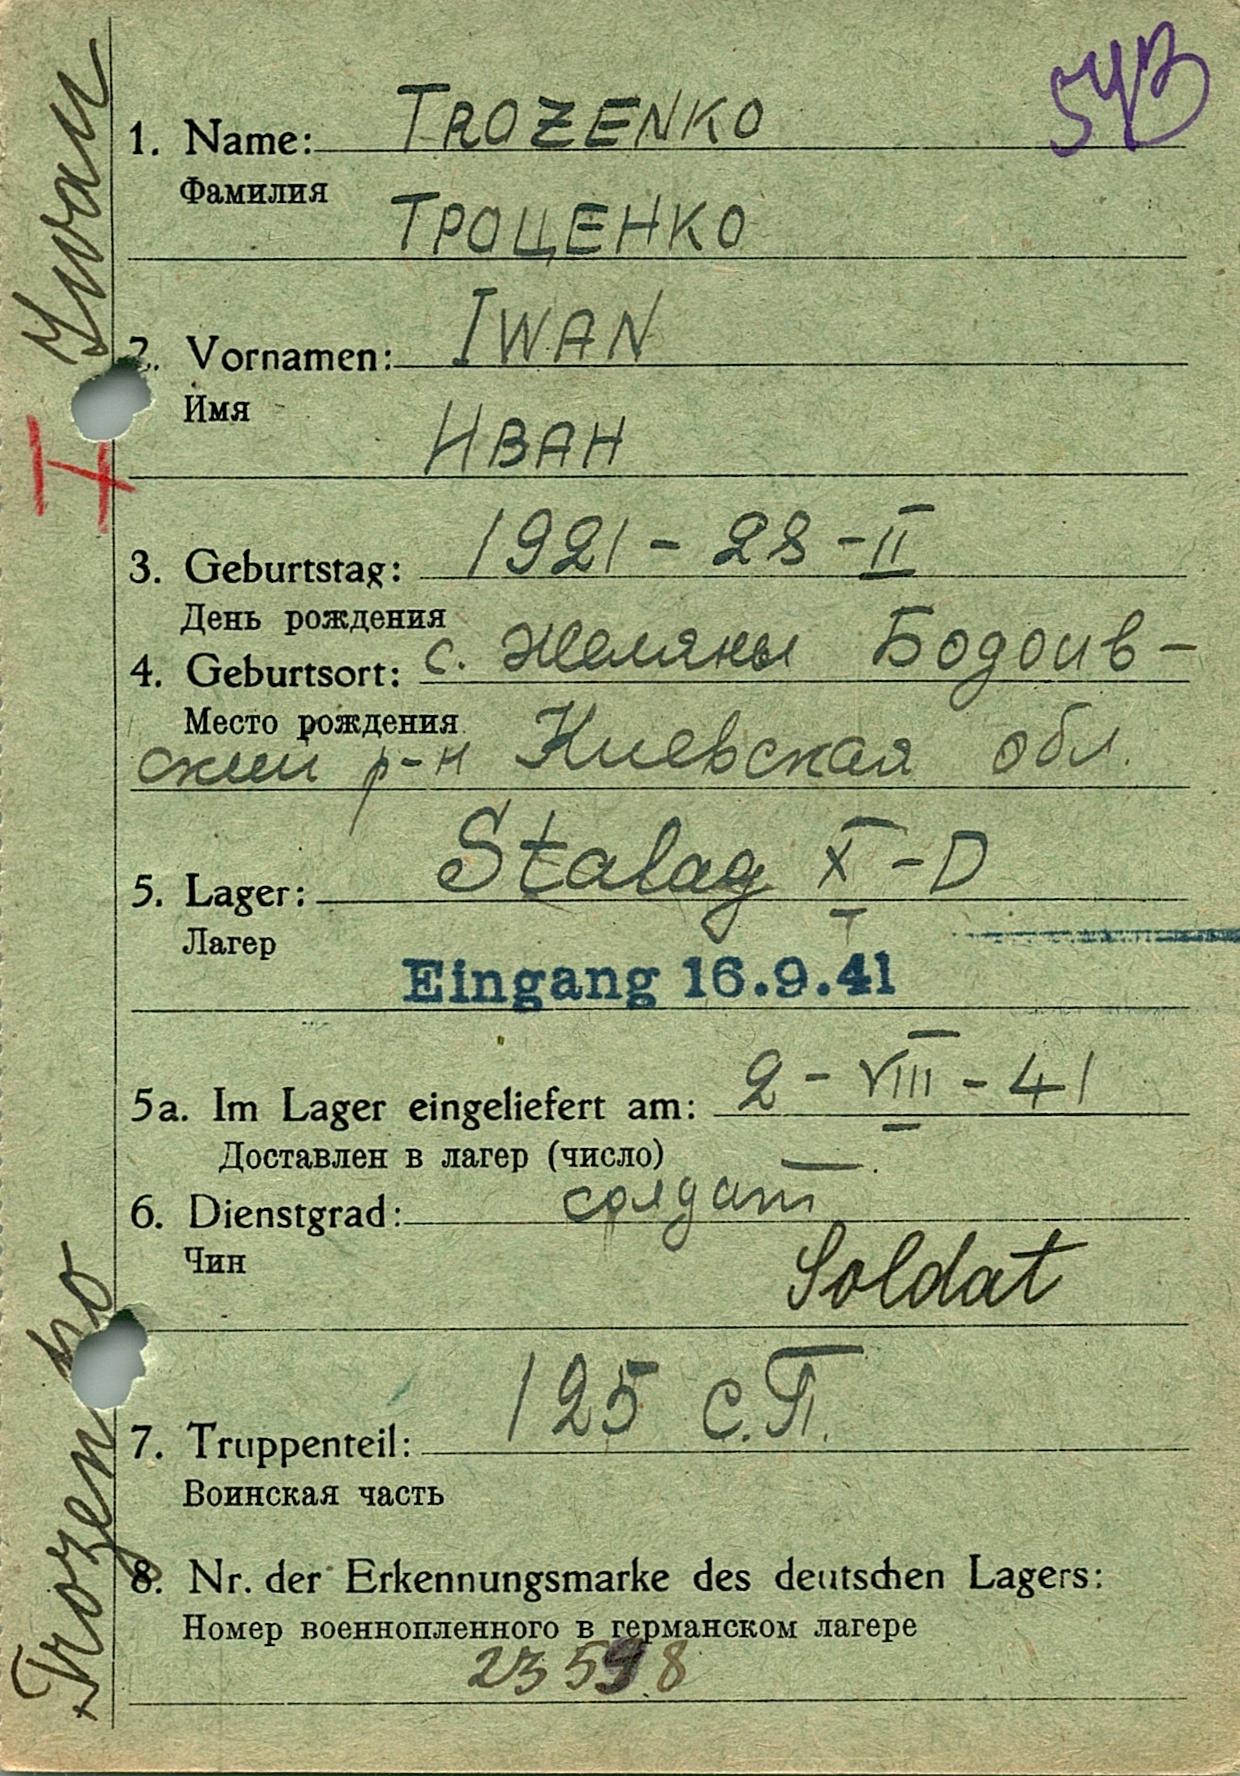 1. Name: TROZENKO
Фамилия
ТРОЦЕНКО
2. Vornamen: IWAN
Имя
ИВАН
3. Geburtstag: 1921 - 28 - II
День рождения
4. Geburtsort: с. Желяны Бодоив-
Место рождения
ский р-н Киевская обл.
5. Lager: Stalag X-D
Лагер
Eingang 16.9.41
5a. Im Lager eingeliefert am: 2 - VIII - 41
Доставлен в лагер (число)
6. Dienstgrad: солдат
Чин
Soldat
7. Truppenteil: 125 с.П.
Воинская часть
8. Nr. der Erkennungsmarke des deutschen Lagers:
Номер военнопленного в германском лагере
23598
Trozenko Iwan